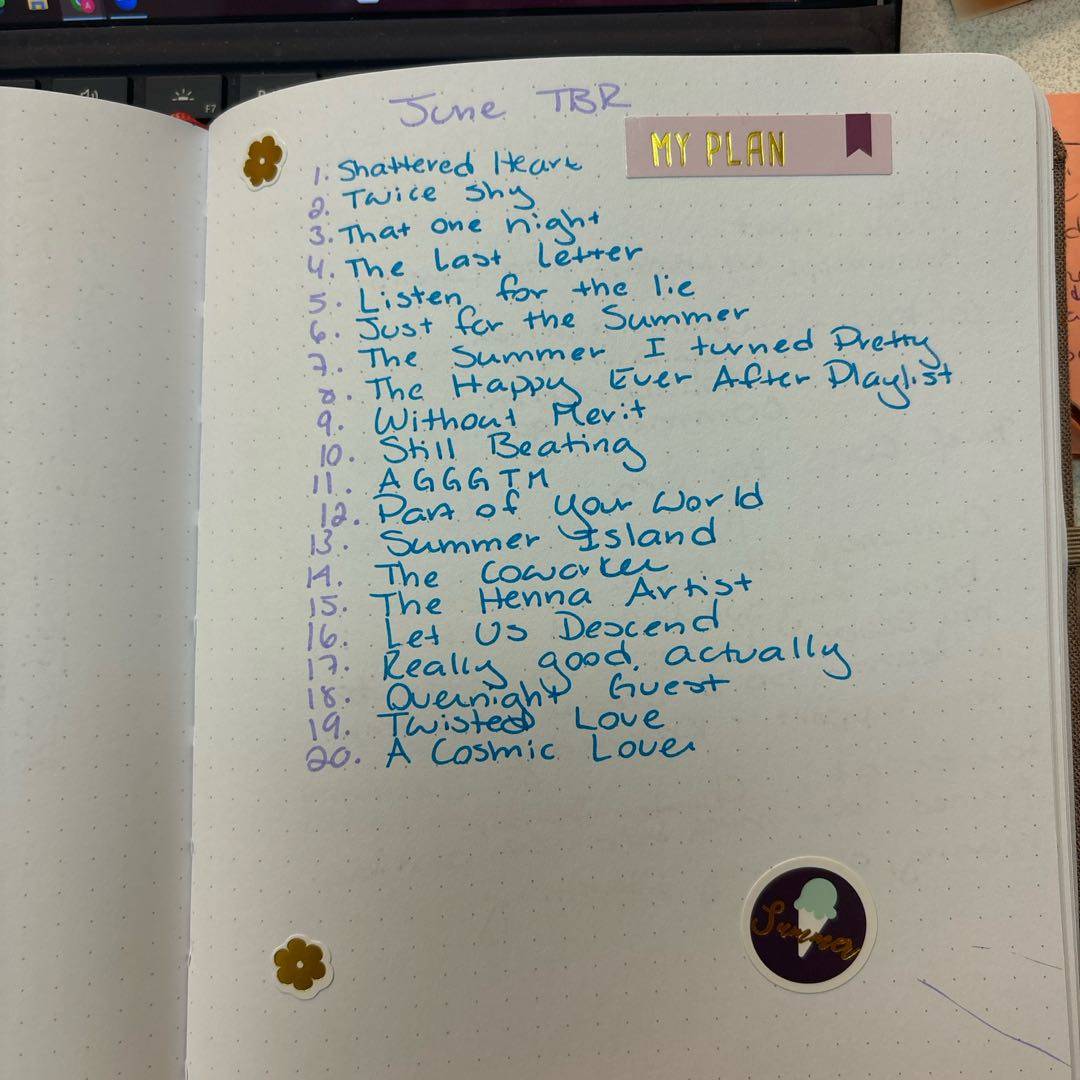 F7
June TBR
MY PLAN
1. Shattered Heart
2. Twice Shy
3. That one night
4. The Last Letter
5. Listen for the lie
6. Just for the Summer
7. The Summer I turned Pretty
8. The Happy Ever After Playlist
9. Without Merit
10. Still Beating
11. AGGGTM
12. Part of your World
13. Summer Island
14. The Coworker
15. The Henna Artist
16. Let Us Descend
17. Really good, actually
18. Overnight Guest
19. Twisted Love
20. A Cosmic Love
Summer